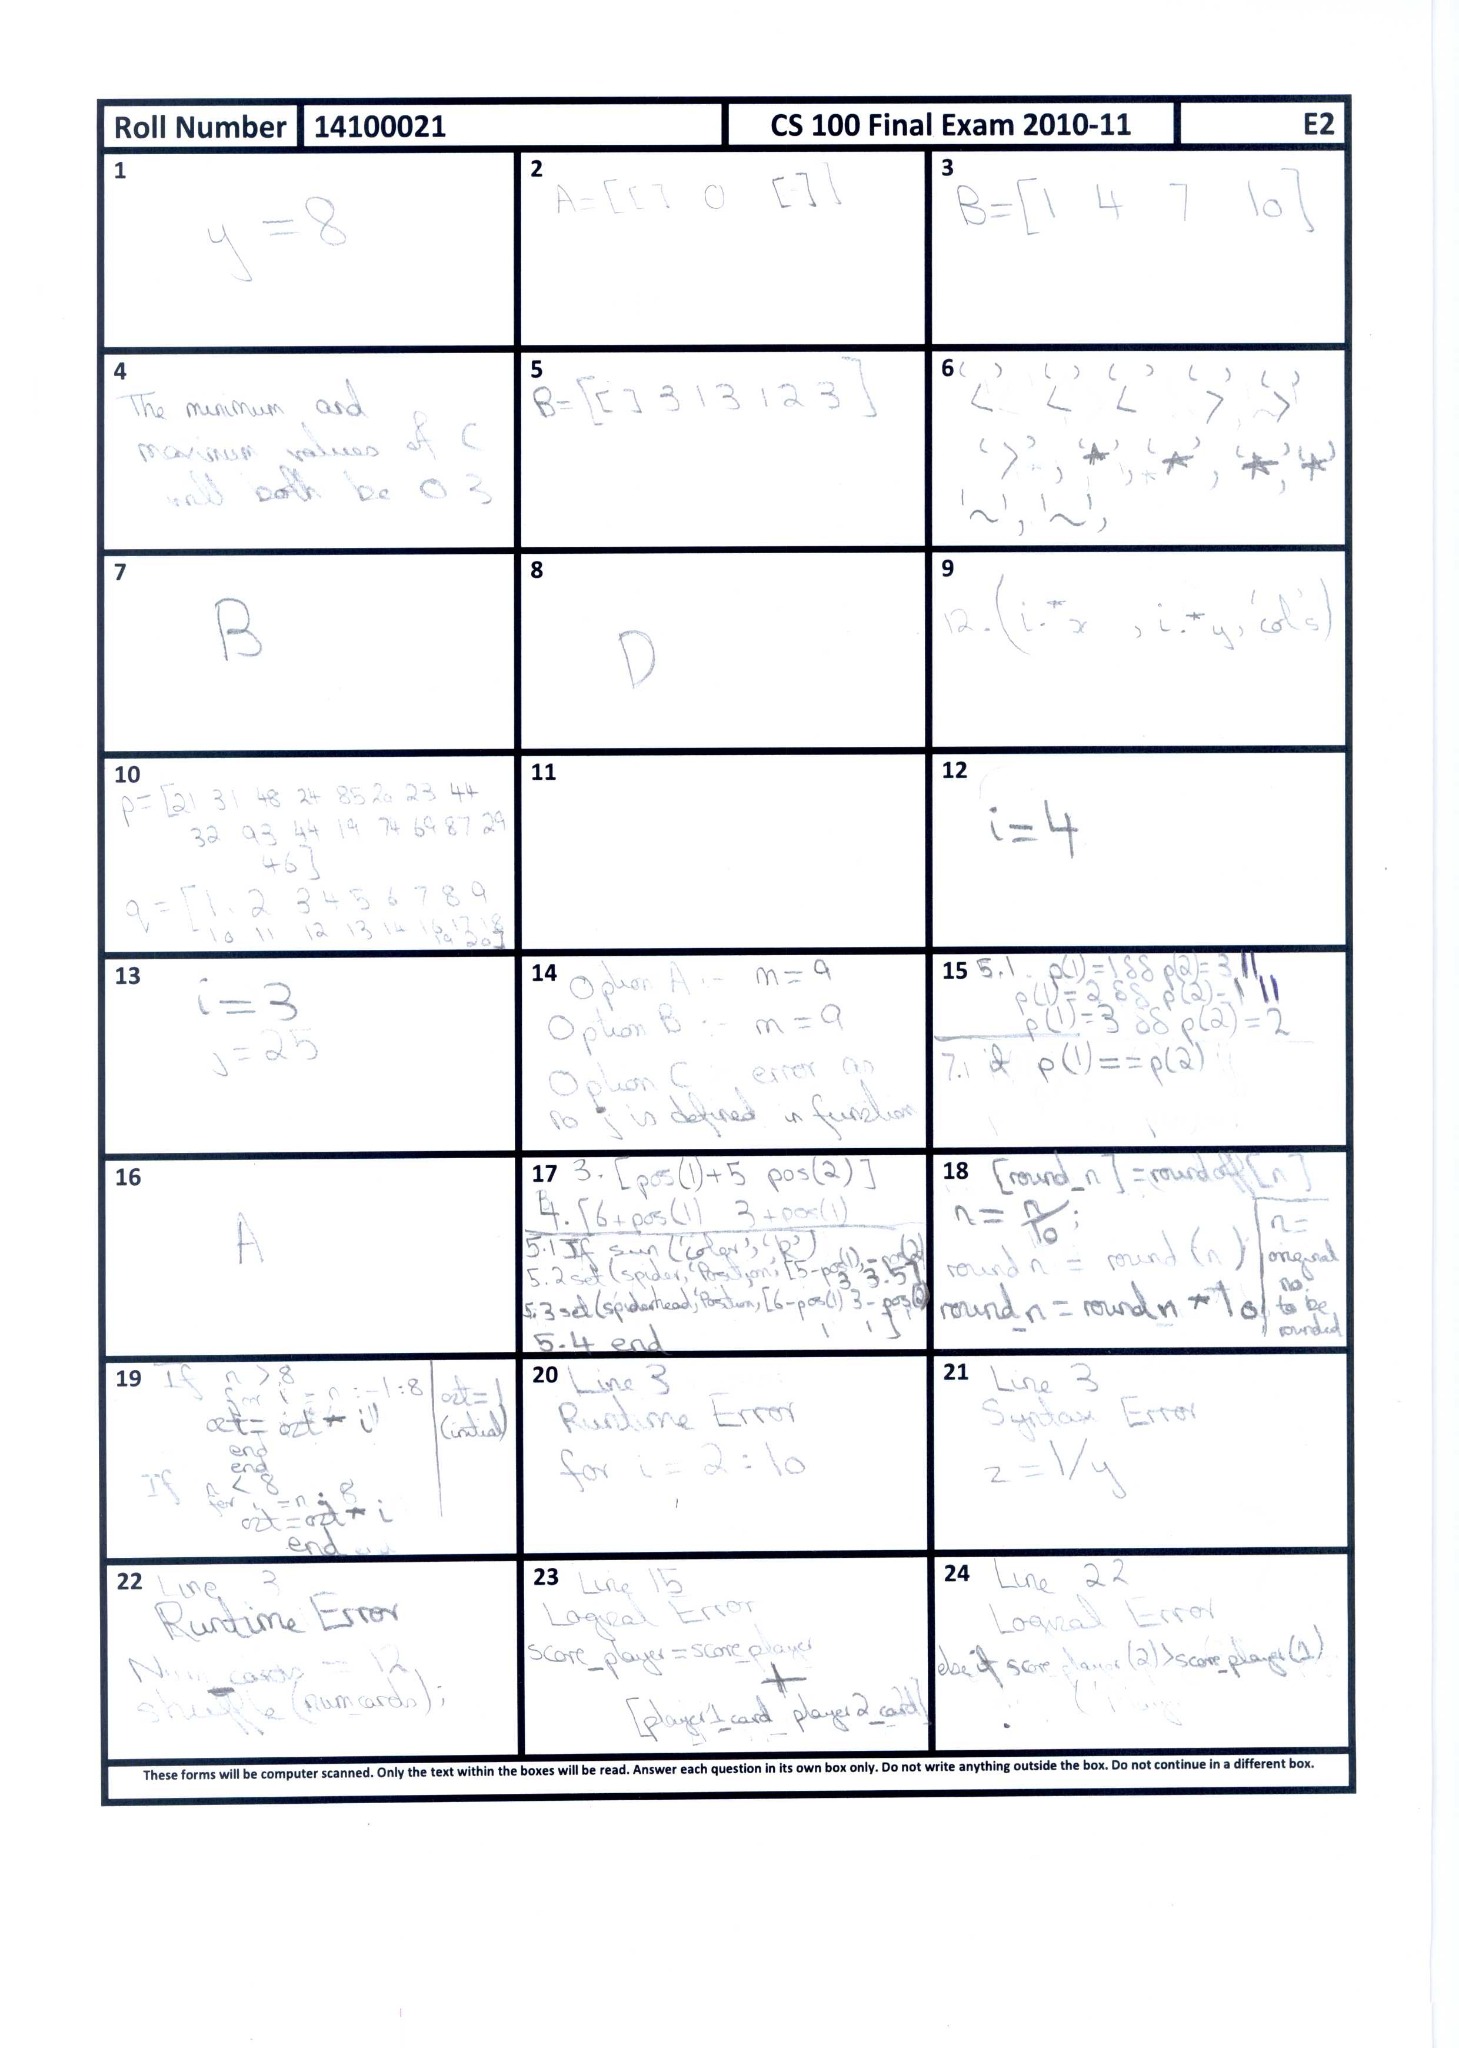 Roll Number 14100021 CS 100 Final Exam 2010-11 E2
1
y = 8
2
A=[[] 0 []]
3
B=[1 4 7 10]
4
The minimum and
maximum values of C
will both be 0 3
5
B=[[] 3 13 12 3]
6
'<' '<' '<' '>' '>'
'>', '*', '*', '*', '*'
'~', '~',
7
B
8
D
9
12. (i.*x , i.*y, 'col's)
10
p=[21 31 48 24 85 20 23 44
32 93 44 19 74 69 87 29
46]
q=[1 2 3 4 5 6 7 8 9
10 11 12 13 14 16 17 18
19 20]
11
12
i=4
13
i=3
j=25
14
Option A :- m=9
Option B :- m=9
Option C , error as
no j is defined in function
15
5.1. p(1)=1 && p(2)=3 ||
p(1)=2 && p(2)=1 ||
p(1)=3 && p(2)=2
7.1 if p(1)==p(2)
16
A
17
3. [pos(1)+5 pos(2)]
4. [6+pos(1) 3+pos(1)
5.1 If sun ('color','b')
5.2 set (spider,'Position', [5-pos(1), -pos(2)
3 3.5]
5.3 set (spiderhead,'Position, [6-pos(1) 3-pos(2)
1 1]
5.4 end
18
[round_n] = roundoff [n]
n = n/10;
round n = round (n)
round_n = round n * 10
n=
original
no.
to be
rounded
19
If n > 8
for i = n : -1 : 8
ozt= ozt * i
end
end
If n < 8
for i = n : 8
ozt = ozt * i
end
ozt=1
(initial)
20
Line 3
Runtime Error
for i = 2 : 10
21
Line 3
Syntax Error
z = 1/y
22
Line 3
Runtime Error
Num_cards == 12
shuffle (numcards);
23
Line 15
Logical Error
score_player = score_player
+
[player1_card player2_card]
24
Line 22
Logical Error
else if score_player (2) > score_player (1)
These forms will be computer scanned. Only the text within the boxes will be read. Answer each question in its own box only. Do not write anything outside the box. Do not continue in a different box.